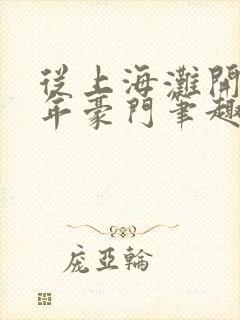 從上海灘開
年豪門筆趣
龐亞輪